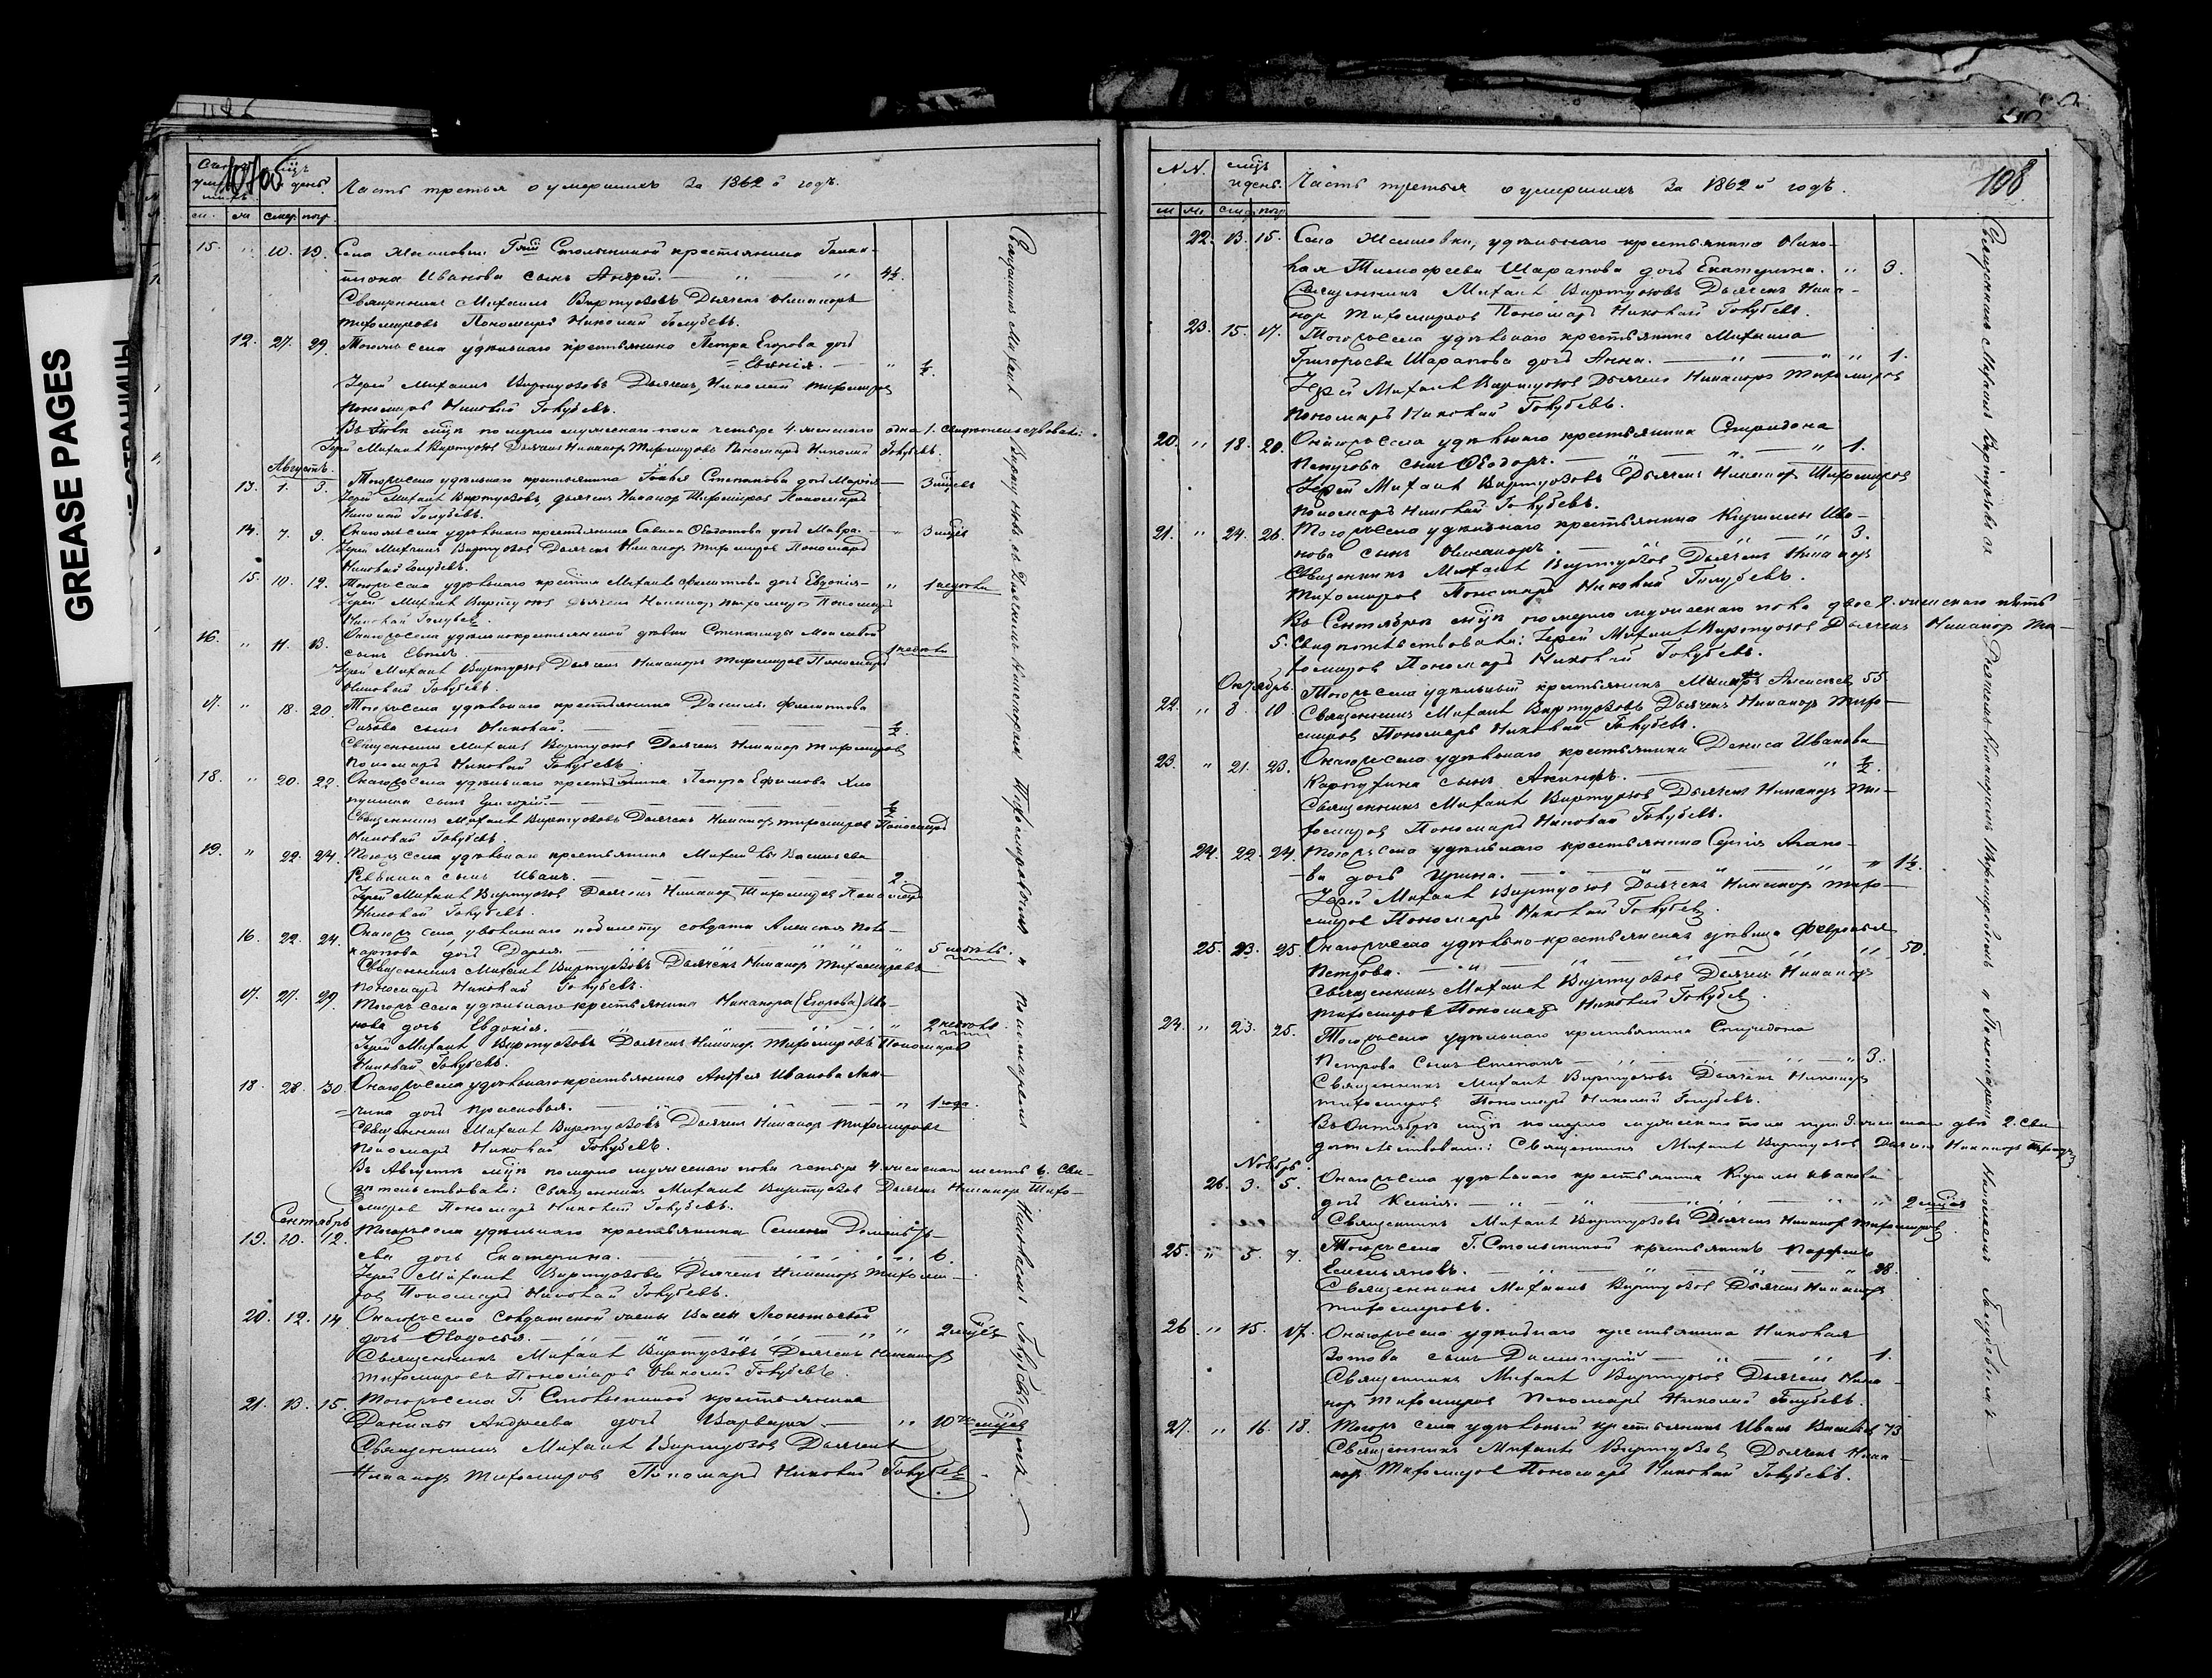 GREASE PAGES
Часть третья о умершихъ за 1862й годъ.
м. ж. смер. погр.
15. " 10. 19. Села Г-жи Столыпиной крестьянина
Иванова сынъ Андрей. 4½.
Священникъ Михаилъ Виртуозовъ Дьячекъ Никаноръ
Тихомировъ Пономарь Николай Голубевъ.
12. 27. 29. Тогожъ села удѣльнаго крестьянина Петра Егорова дочь
Евѳимія. " ½.
Іерей Михаилъ Виртуозовъ Дьячекъ Николай Тихомиров
Пономарь Николай Голубевъ.
Въ Іюлѣ мцѣ померло мужескаго пола четыре 4. женскаго одна 1. Свидѣтельствовали:
Іерей Михаилъ Виртуозов Дьячекъ Никанор Тихомировъ Пономарь Николай Голубевъ.
Августъ.
13. 1. 3. Тогожъ села удѣльнаго крестьянина Степанова дочь Марія 3 мцевъ
Іерей Михаилъ Виртуозовъ, дьячекъ Никанор Тихомировъ Пономарь
Николай Голубевъ.
14. 7. 9. Онагожъ села удѣльнаго крестьянина Савина Ѳедотова дочь Мавра. " 3 мцев
Іерей Михаилъ Виртуозов Дьячекъ Никанор Тихомиров Пономарь
Николай Голубевъ.
15. 10. 12. Тогожъ села удѣльнаго крестьянина Михаила Филиппова дочь Евдокія " 1 недели
Іерей Михаилъ Виртуозов дьячекъ Никанор Тихомиров Пономарь
Николай Голубев.
16. " 11. 13. Онагожъ села удѣльнокрестьянской дѣвки Степаниды Моисеевой
сынъ Евтихъ. 1 недели
Іерей Михаилъ Виртуозов Дьячекъ Никаноръ Тихомиров Пономарь
Николай Голубевъ.
17. " 18. 20. Тогожъ села удѣльнаго крестьянина Данилы Филиппова
сынъ Николай. ½.
Священникъ Михаилъ Виртуозов Дьячекъ Никанор Тихомиров
Пономарь Николай Голубевъ.
18. " 20. 22. Онагожъ села удѣльнаго крестьянина Петра Ефимова
сынъ Григорій. ½
Священникъ Михаилъ Виртуозовъ Дьячекъ Никанор Тихомиров Пономарь
Николай Голубевъ.
19. " 22. 24. Тогожъ села удѣльнаго крестьянина Васильева
сынъ Иванъ. 2.
Іерей Михаилъ Виртуозов Дьячекъ Никанор Тихомиров Пономарь
Николай Голубевъ.
16. 22. 24. Онагожъ села, уволенаго по билету солдата Алексея По-
карпова дочь Дарья. " 5 недель.
Священникъ Михаилъ Виртуозовъ Дьячекъ Никанор Тихомировъ
Пономарь Николай Голубевъ.
17. 27. 29. Тогожъ села удѣльнаго крестьянина Никанора (Егорова) Ива-
нова дочь Евдокія. " 2 недели.
Іерей Михаилъ Виртуозовъ Дьячекъ Никанор Тихомировъ Пономарь
Николай Голубевъ.
18. 28. 30. Онагожъ села удѣльнаго крестьянина Андрея Иванова
дочь Прасковья. " 1 года.
Священникъ Михаилъ Виртуозовъ Дьячекъ Никанор Тихомировъ
Пономарь Николай Голубевъ.
Въ Августѣ мцѣ померло мужескаго пола четыре 4. женскаго шесть 6. Сви-
дѣтельствовали: Священникъ Михаилъ Виртуозов Дьячекъ Никанор Тихо-
миров Пономарь Николай Голубевъ.
Сентябрь
19. 10. 12. Тогожъ села удѣльнаго крестьянина Семена
дочь Екатерина. 6.
Іерей Михаилъ Виртуозовъ Дьячекъ Никанор Тихоми-
ров Пономарь Николай Голубевъ.
20. 12. 14. Онагожъ села солдатской жены Васы Леонтьевой
дочь Ѳеодосья. " 2 мцев
Священникъ Михаилъ Виртуозовъ Дьячекъ Никанор
Тихомировъ Пономарь Николай Голубевъ.
21. 13. 15. Тогожъ села Г. Столыпиной крестьянина
Данилы Андреева дочь Варвара. " 10ти мцев
Священникъ Михаилъ Виртуозов Дьячекъ
Никанор Тихомиров Пономарь Николай Голубев.
Священникъ Михаилъ Виртуозовъ съ Дьячкомъ Никаноромъ Тихомировымъ и Пономаремъ Николаемъ Голубевымъ
108
N.N. мцъ и день. Часть третья о умершихъ за 1862й годъ.
м. ж. смер. погр.
22. 13. 15. Села удѣльнаго крестьянина Нико-
лая Тимофеева Шарапова дочь Екатерина. " 3.
Священникъ Михаилъ Виртуозовъ Дьячекъ Ника-
нор Тихомиров Пономарь Николай Голубевъ.
23. 15. 17. Тогожъ села удѣльнаго крестьянина Михаила
Григорьева Шарапова дочь Анна. " 1.
Іерей Михаилъ Виртуозов Дьячекъ Никаноръ Тихомиров
Пономарь Николай Голубевъ.
20. " 18. 20. Онагожъ села удѣльнаго крестьянина Спиридона
сынъ Ѳеодоръ. 1.
Іерей Михаилъ Виртуозовъ Дьячекъ Никанор Тихомиров
Пономарь Николай Голубевъ.
21. " 24. 26. Тогожъ села удѣльнаго крестьянина Кирилы Ива-
нова сынъ Никаноръ. 3.
Священникъ Михаилъ Виртуозов Дьячекъ Никанор
Тихомиров Пономарь Николай Голубевъ.
Въ Сентябрѣ мцѣ померло мужескаго пола двое 2. женскаго пять
5. Свидѣтельствовали: Іерей Михаилъ Виртуозов Дьячекъ Никанор Ти-
хомиров Пономарь Николай Голубевъ.
Октябрь.
22. " 8 10 Тогожъ села удѣльный крестьянинъ Алексеев 55
Священникъ Михаилъ Виртуозовъ Дьячекъ Никанор Тихо-
миров Пономарь Николай Голубевъ.
23. " 21. 23. Онагожъ села удѣльнаго крестьянина Дениса Иванова
сынъ Акинфъ. ½.
Священникъ Михаилъ Виртуозов Дьячекъ Никанор Ти-
хомиров Пономарь Николай Голубевъ.
24. 22. 24. Тогожъ села удѣльнаго крестьянина Сергия Агапо-
ва дочь Ирина. " 1½.
Іерей Михаилъ Виртуозов Дьячекъ Никанор Тихо-
миров Пономарь Николай Голубев.
25. 23. 25. Онагожъ села удѣльно-крестьянская дѣвица Февронья
Петрова. " 50.
Священникъ Михаилъ Виртуозов Дьячекъ Никанор
Тихомиров Пономарь Николай Голубев.
24. " 23. 25. Тогожъ села удѣльнаго крестьянина Спиридона
Петрова сынъ Степанъ 3.
Священникъ Михаилъ Виртуозовъ Дьячекъ Никанор
Тихомиров Пономарь Николай Голубевъ.
Въ Октябрѣ мцѣ померло мужескаго пола три 3. женскаго двѣ 2. Сви-
дѣтельствовали: Священникъ Михаилъ Виртуозов Дьячекъ Никанор Тихомир
Ноябрь
26. 3. 5. Онагожъ села удѣльнаго крестьянина Кирилы Иванова
дочь Ксенія. " 2 мцев
Священникъ Михаилъ Виртуозовъ Дьячекъ Никанор Тихомиров.
25. " 5. 7. Тогожъ села Г. Столыпиной крестьянинъ Парфенъ
Емельяновъ. 38.
Священникъ Михаилъ Виртуозов Дьячекъ Никанор
Тихомировъ.
26. " 15. 17. Онагожъ села удѣльнаго крестьянина Николая
Зотова сынъ Димитрій 1.
Священникъ Михаилъ Виртуозов Дьячекъ Ника-
нор Тихомиров Пономарь Николай Голубевъ.
27. " 16. 18. Тогожъ села удѣльный крестьянинъ Иванъ Васильев 73
Священникъ Михаилъ Виртуозов Дьячекъ Ника-
нор Тихомиров Пономарь Николай Голубевъ.
Священникъ Михаилъ Виртуозовъ съ Дьячкомъ Никаноромъ Тихомировымъ и Пономаремъ Николаемъ Голубевымъ